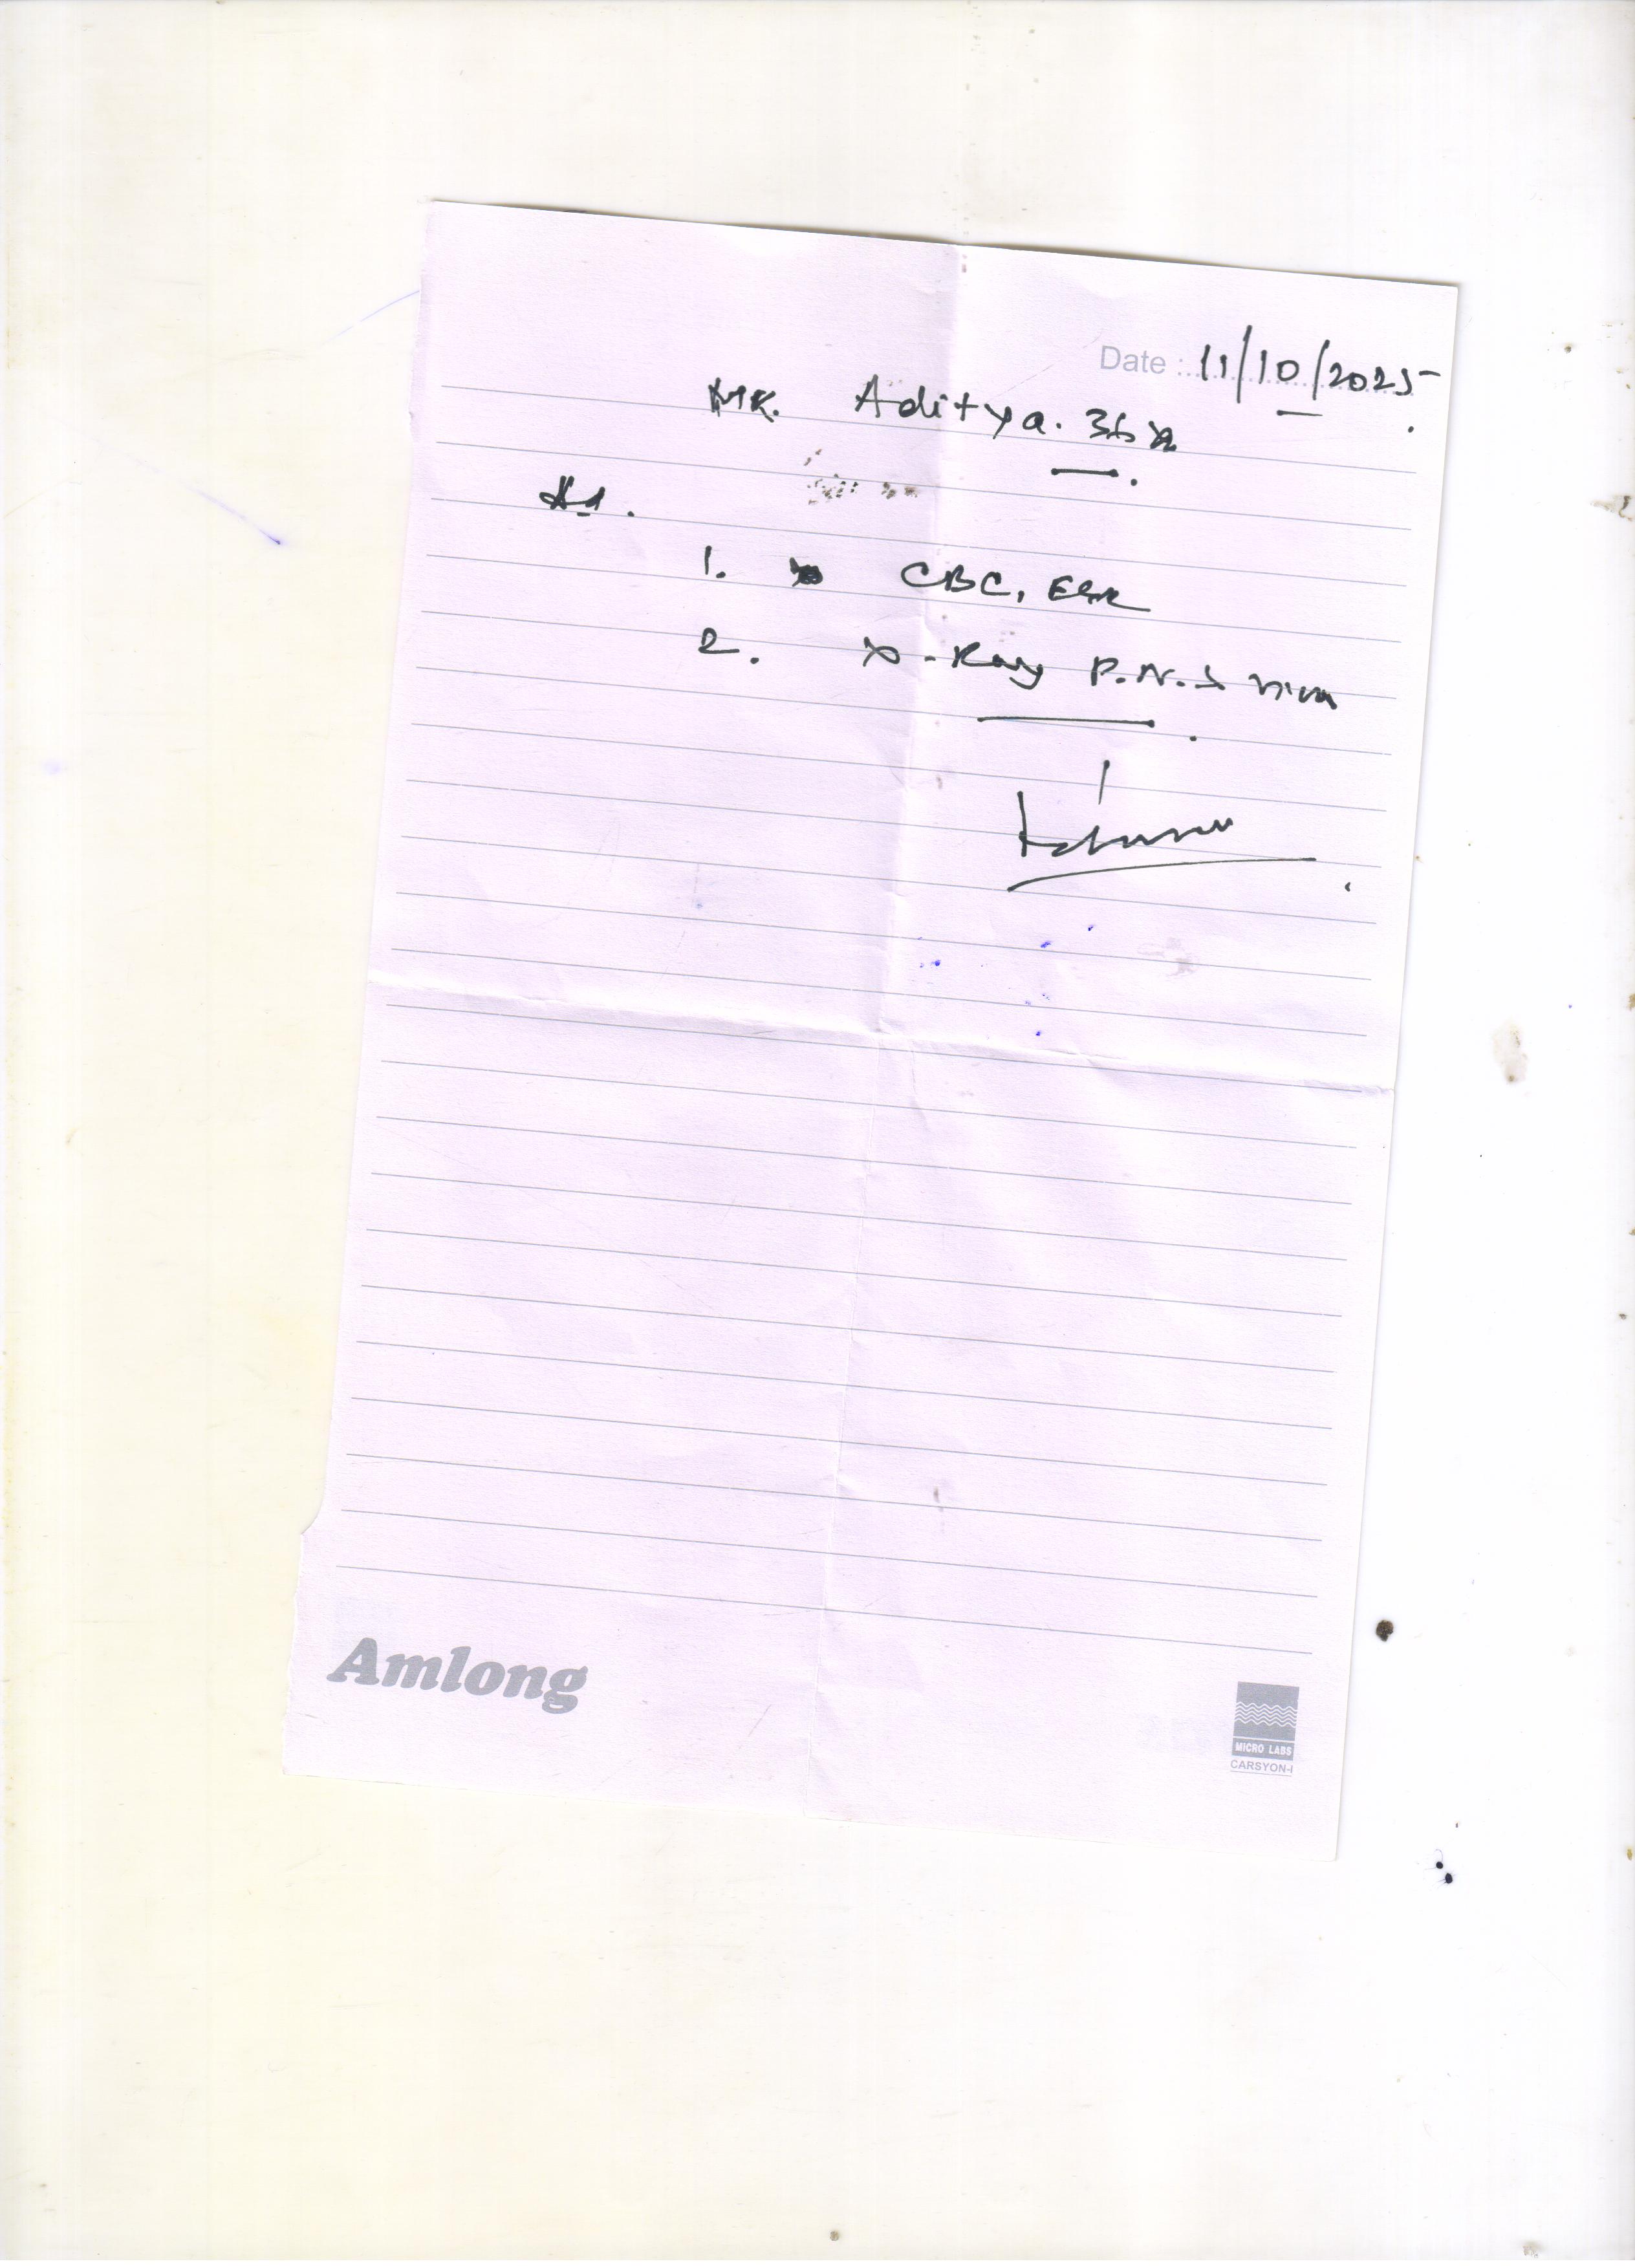 Date : 11/10/2025
Mr. Aditya. 36
1. CBC, ESR
2. X-Ray P.N.S view
Amlong
MICRO LABS
CARSYON-I